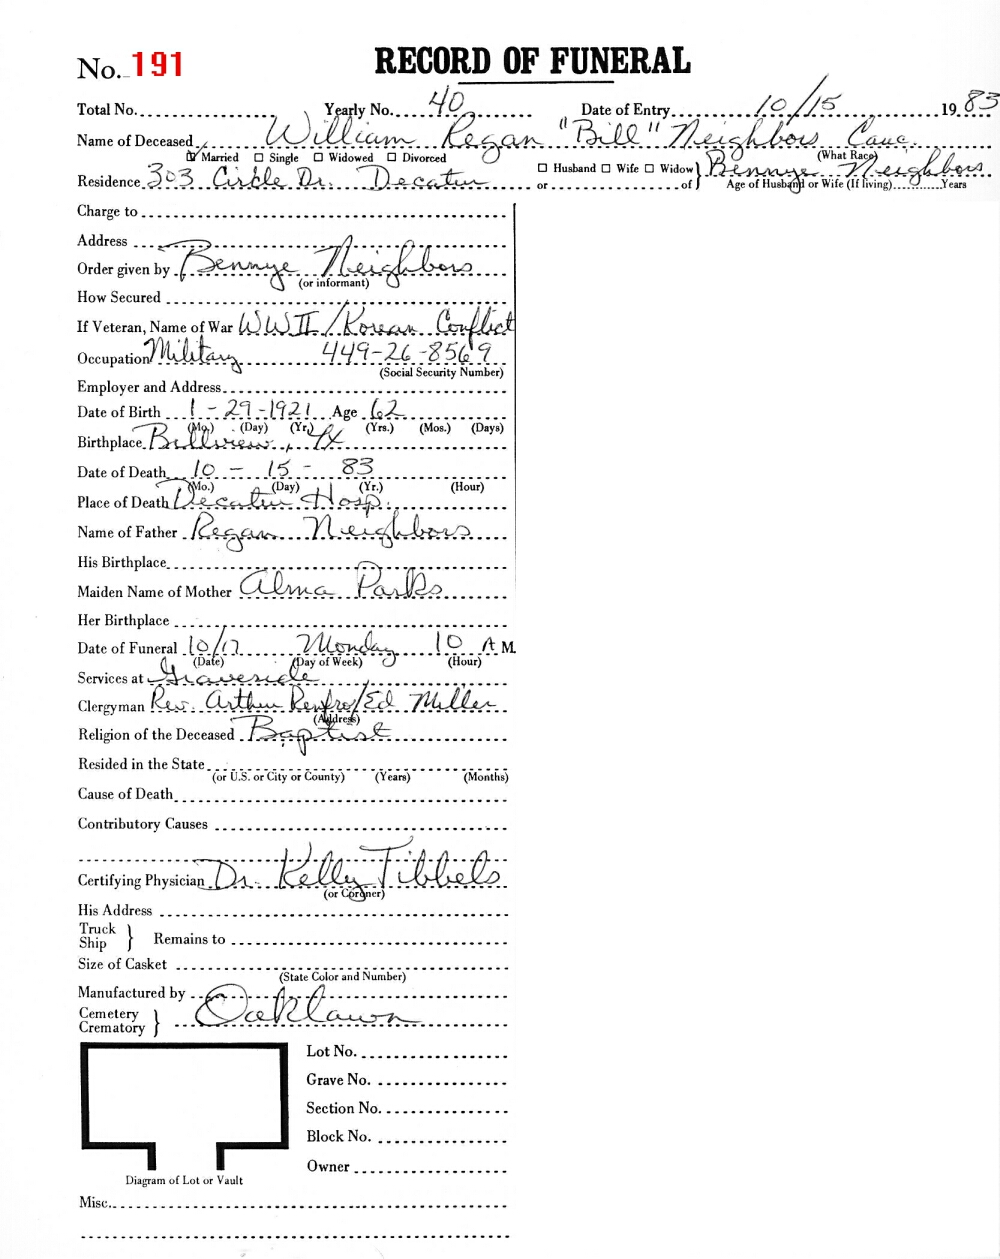 No. 191 RECORD OF FUNERAL
Total No. Yearly No. 40 Date of Entry 10/15 1983
Name of Deceased William Regan "Bill" Neighbors Cauc.
☑ Married ☐ Single ☐ Widowed ☐ Divorced (What Race)
Residence 303 Circle Dr. Decatur ☐ Husband ☐ Wife ☐ Widow } Bennye Neighbors
or of } Age of Husband or Wife (If living) Years
Charge to
Address
Order given by Bennye Neighbors
(or informant)
How Secured
If Veteran, Name of War WWII/Korean Conflict
Occupation Military 449-26-8569
(Social Security Number)
Employer and Address
Date of Birth 1-29-1921 Age 62
(Mo.) (Day) (Yr.) (Yrs.) (Mos.) (Days)
Birthplace , TX
Date of Death 10 - 15 - 83
(Mo.) (Day) (Yr.) (Hour)
Place of Death Decatur Hosp.
Name of Father Regan Neighbors
His Birthplace
Maiden Name of Mother Alma Parks
Her Birthplace
Date of Funeral 10/17 Monday 10 A M.
(Date) (Day of Week) (Hour)
Services at Graveside
Clergyman Rev. Arthur Renfro/Ed Miller
(Address)
Religion of the Deceased Baptist
Resided in the State
(or U.S. or City or County) (Years) (Months)
Cause of Death
Contributory Causes
Certifying Physician Dr. Kelly Tibbels
(or Coroner)
His Address
Truck
Ship } Remains to
Size of Casket
(State Color and Number)
Manufactured by
Cemetery
Crematory } Oaklawn
Lot No.
Grave No.
Section No.
Block No.
Owner
Diagram of Lot or Vault
Misc.